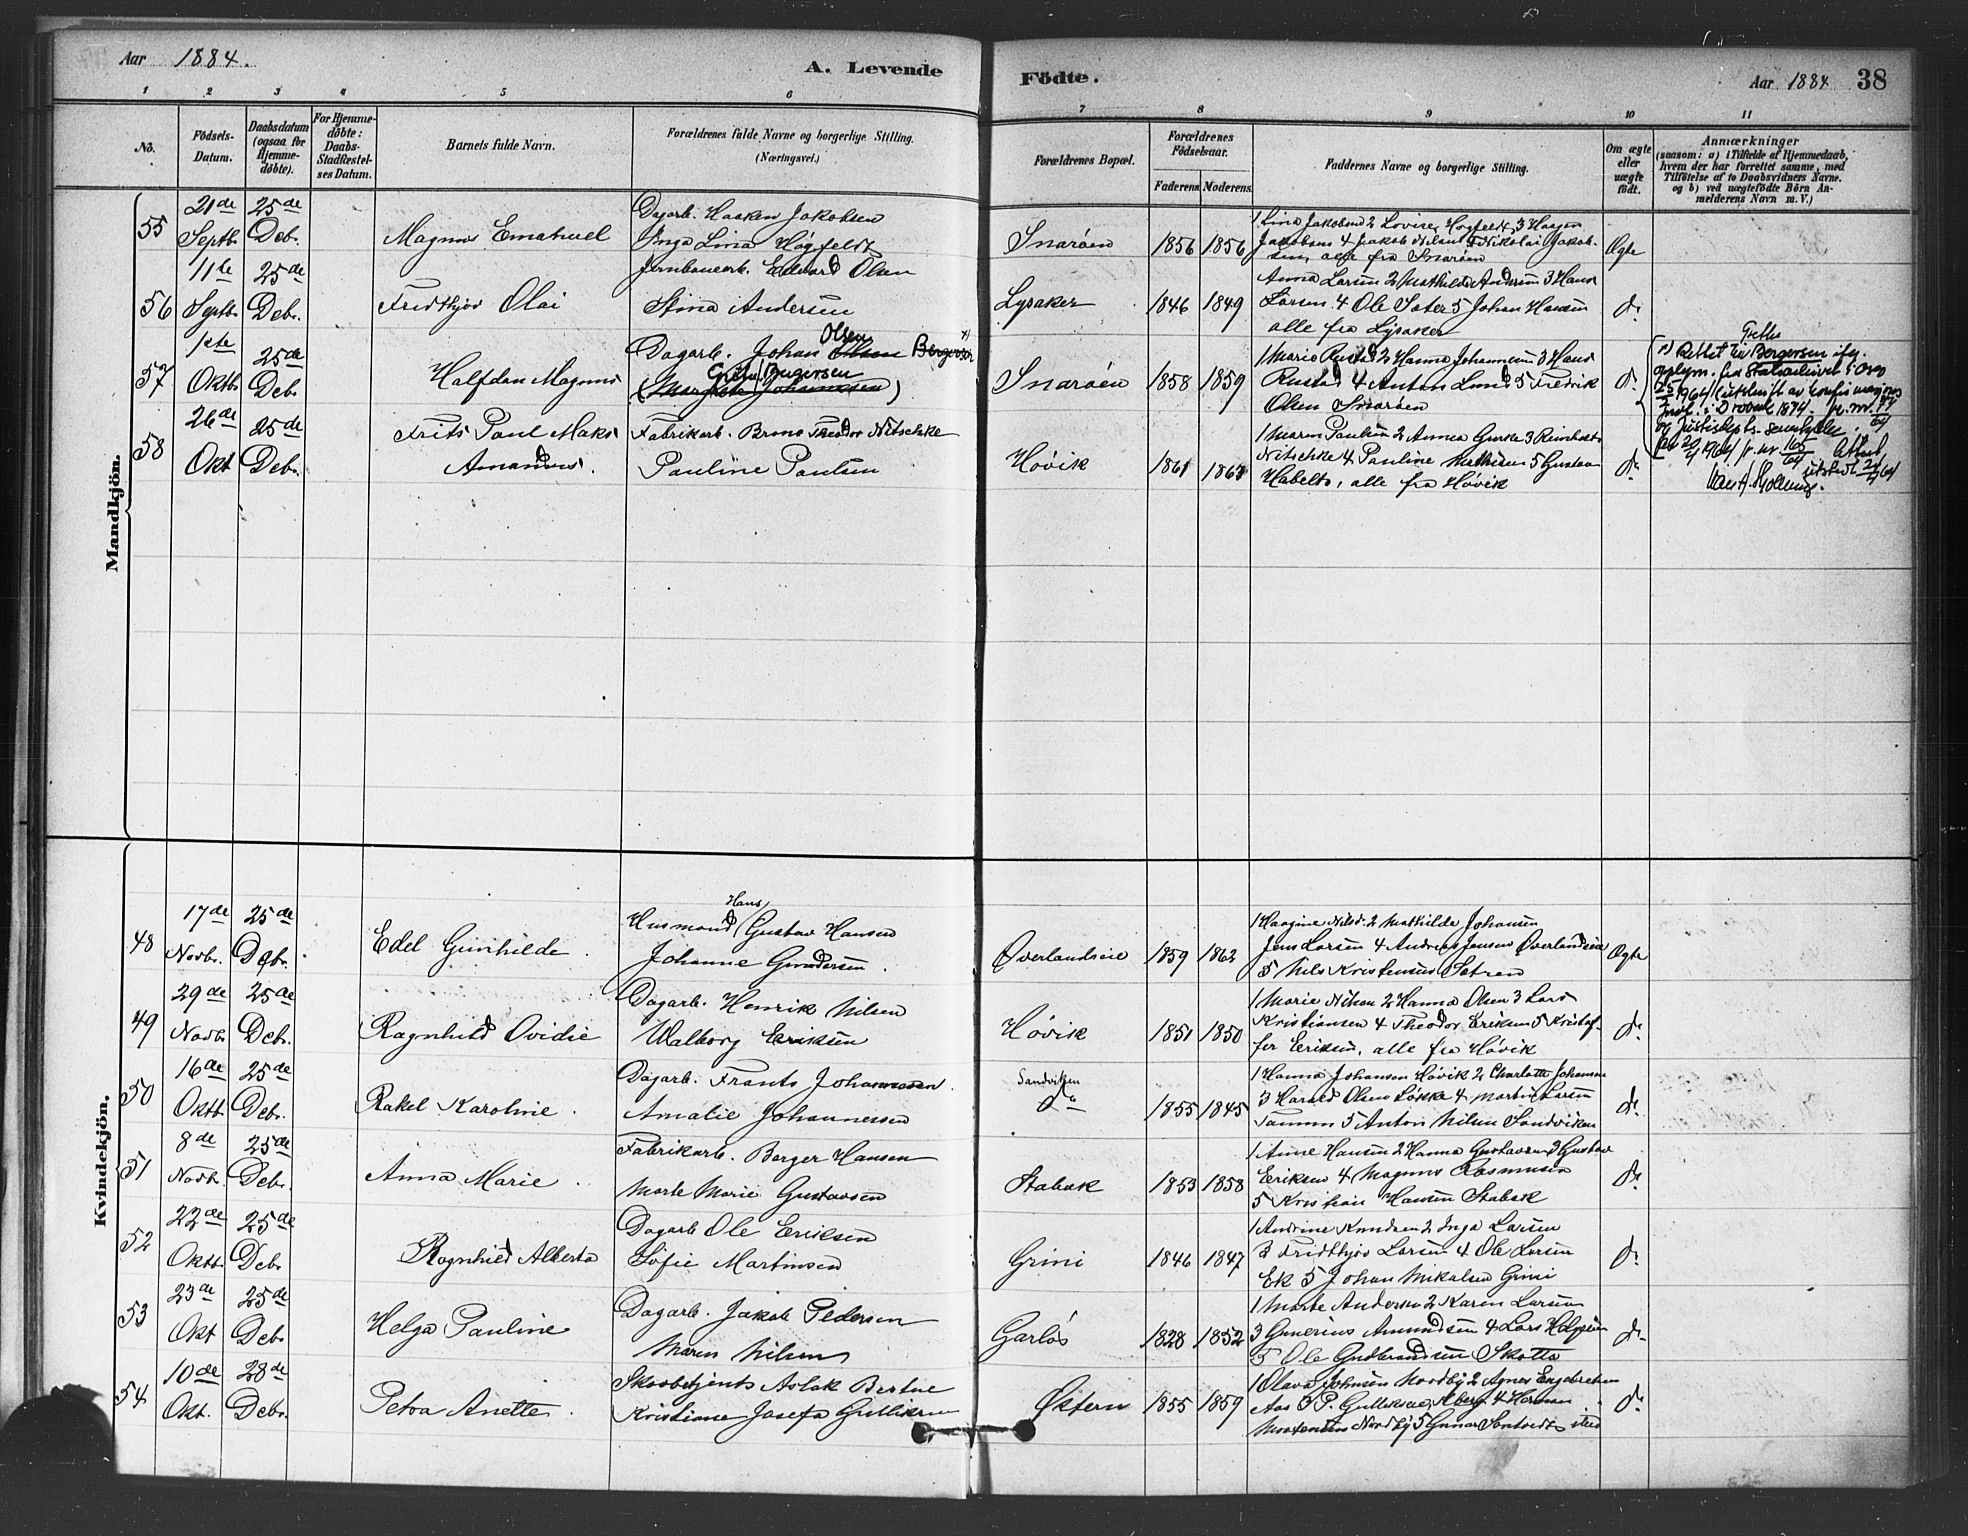 Aar 1884.
A. Levende
Födte.
Aar 1884
38
1 2 3 4 5 6 7 8 9 10 11
No.
Födsels-
Datum.
Daabsdatum
(ogsaa for
Hjemme-
döbte).
For Hjemme-
döbte:
Daabs-
Stadfæstel-
ses Datum.
Barnets fulde Navn.
Forældrenes fulde Navne og borgerlige Stilling.
(Næringsvei.)
Forældrenes Bopæl.
Forældrenes
Födselsaar.
Faderens. Moderens.
Faddernes Navne og borgerlige Stilling.
Om ægte
eller
uægte
født.
Anmærkninger
(saasom: a) i Tilfælde af Hjemmedaab,
hvem der har forrettet samme, med
Tilföielse af to Daabsvidners Navne.
og b) ved uægtefödte Börn An-
melderens Navn m. V.)
Mandkjön.
55
21de Septb.
25de Deb.
Magnus Emanuel
Dagarb. Haaken Jakobsen
Inga Lina Høgfeldt
Snarøen
1856 1856
1 Lina Jakobsen 2 Lovise Høgfeldt 3 Haagen
Jakobsens 4 Jakob Nilsens 5 Nikolai Jakob-
sen, alle fra Snarøen
Ægte
56
11te Septb.
25de Deb.
Fridthjov Olai
Jernbanearb. Edvard Olsen
Stina Andersen
Lysaker
1846 1849
Anna Larsen 2 Mathilde Andersen 3 Hans
Larsen 4 Ole Sater 5 Johan Hansen
alle fra Lysaker
do
57
1ste Oktb.
25de Deb.
Halfdan Magnus
Olsen
Dagarb. Johan Olsen Bergersen x)
Grethe Bergersen
(Margrethe Johannesen)
Snarøen
1858 1859
1 Marie Rustad 2 Hanna Johannesen 3 Hans
Rustad 4 Anton Lund 5 Fredrik
Olsen Snarøen
do
x) Rettet til Bergersen ifg.
oplysn. fra Statsarkivet i Oslo
58
26de Okt
25de Deb.
Frits Paul Maks
Amandus.
Fabrikarb. Bruno Theodor Nitschke
Pauline Paulsen
Høvik
1861 1861
1 Maren Paulsen 2 Anna Gurke 3 Reinholt
Nitschke 4 Pauline Mathisen 5 Gustav
Habelts, alle fra Høvik
do
Kvindekjön.
48
17de Novbr.
25de Debr.
Edel Gunhilde
Hans
Husmand Gustav Hansen
Johanne Gundersen
Øverlandseie
1859 1862
1 Haagine Nilsd. 2 Mathilde Johansen
Jens Larsen 4 Andreas Jensen Øverlandseie
5 Nils Kristensens Sætren
Ægte
49
29de Novb.
25de Deb.
Ragnhild Ovidie
Dagarb. Henrik Nilsen
Walborg Eriksen
Høvik
1851 1850
1 Marie Nilsen 2 Hanna Olsen 3 Lars
Kristiansen 4 Theodor Eriksen 5 Kristof-
fer Eriksen, alle fra Høvik
do
50
16de Oktb
25de Deb.
Rakel Karoline
Dagarb. Frants Johannesen
Amalie Johannessen
Sandviken
do
1855 1845
1 Hanna Johansen Høvik 2 Charlotte Johansen
3 Harald Olsen Løkke 4 Martin Larsen
Tanum 5 Anton Nilsen Sandviken
do
51
8de Novb.
25de Deb.
Anna Marie
Fabrikarb. Berger Hansen
Marte Marie Gustavsen
Stabæk
1853 1858
1 Anne Hansen 2 Hanna Gustavsen 3 Gustav
Eriksen 4 Magnus Rasmusen
5 Kristian Hansen Stabæk
do
52
22de Oktb.
25de Deb.
Ragnhild Alberta
Dagarb Ole Eriksen
Sofie Martinsen
Grini
1846 1847
1 Andrine Knudsen 2 Inga Larsen
3 Fridthjov Larsen 4 Ole Larsen
Ek 5 Johan Mikalsen Grini
do
53
23de Okt
25de Deb.
Helga Pauline
Dagarb. Jakob Pedersen
Maren Nilsen
Garløs
1828 1852
1 Marte Andersen 2 Karen Larsen
3 Gunerius Amundsen 4 Lars Helgesen
5 Ole Gudbrandsen Skotta
do
54
10de Okt.
28de Deb.
Petra Anette
Skovbetjents Aslak Bertne
Kristiane Josefa Gulliksen
Østern
1855 1859
1 Olava Johnsen Nordby 2 Agnes Engebretsen
Aas 3 P. Gulliksen, Aberg 4 Herman
Mortensen Nordby 5 Gunar
do